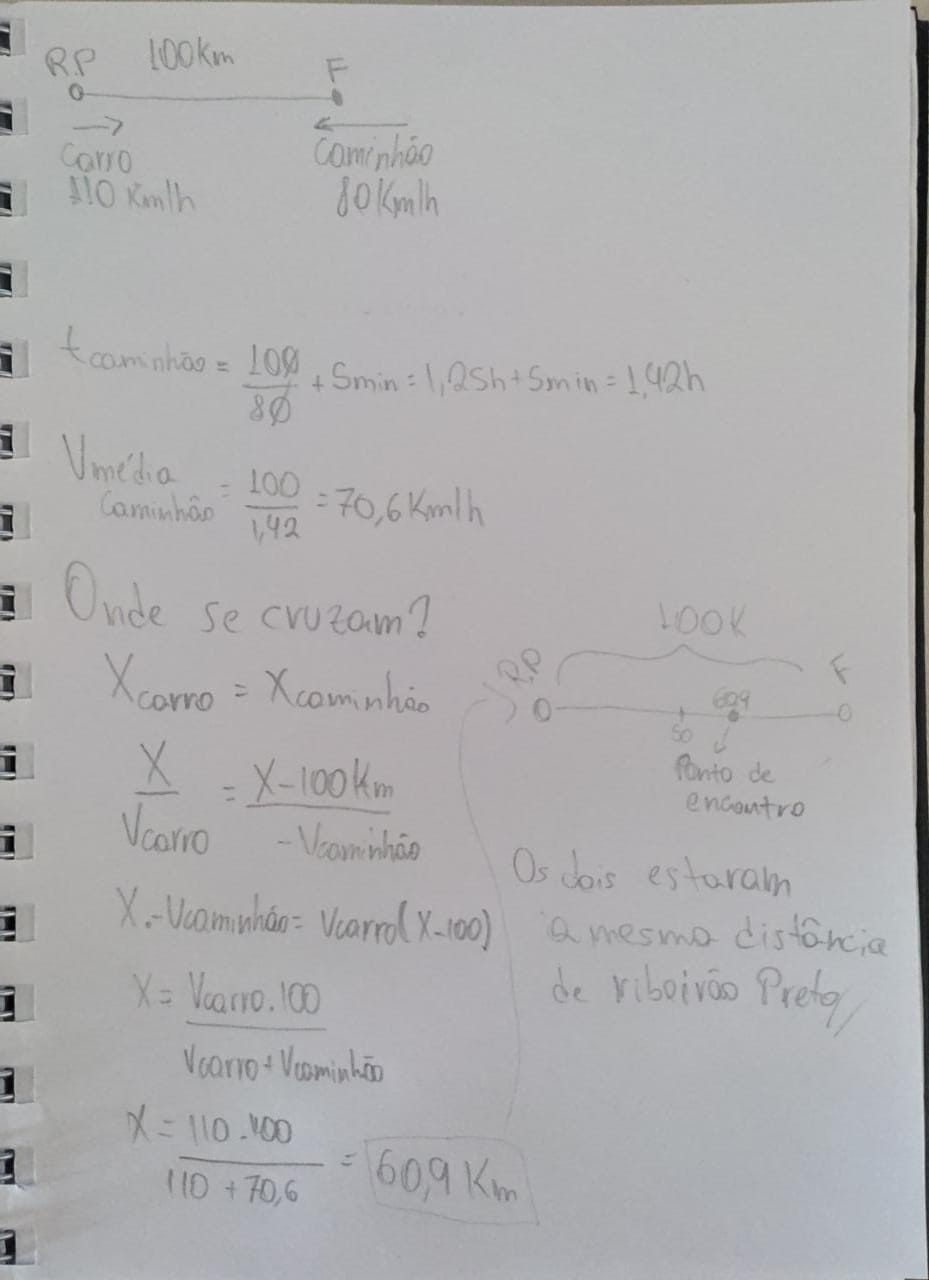 R.P 100Km F
Carro Caminhão
110 Km/h 80Km/h
t caminhão = 100/80 + 5min = 1,25h + 5min = 1,42h
Vmédia caminhão = 100/1,42 = 70,6 Km/h
Onde se cruzam?
Xcarro = Xcaminhão
X/Vcarro = X-100Km/-Vcaminhão
X.-Vcaminhão = Vcarro(X-100)
X = Vcarro.100/Vcarro+Vcaminhão
X = 110.100/110+70,6 = 60,9 Km
100K
R.P F
50 60,9
Ponto de
encontro
Os dois estaram
a mesma distância
de ribeirão Preto